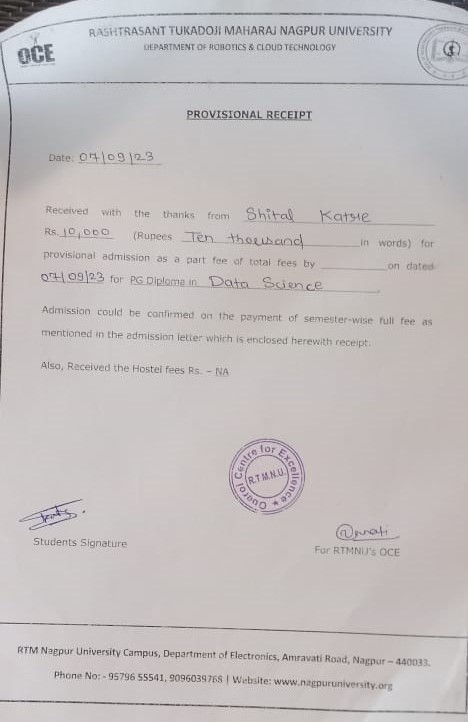 RASHTRASANT TUKADOJI MAHARAJ NAGPUR UNIVERSITY
DEPARTMENT OF ROBOTICS & CLOUD TECHNOLOGY
OCE
PROVISIONAL RECEIPT
Date: 07/09/23
Received with the thanks from Shital Katre
Rs. 10,000 (Rupees Ten thousand in words) for
provisional admission as a part fee of total fees by ______ on dated
07/09/23 for PG Diploma in Data Science.
Admission could be confirmed on the payment of semester-wise full fee as
mentioned in the admission letter which is enclosed herewith receipt.
Also, Received the Hostel fees Rs. – NA
Ouorol Centre for Excellence
R.T.M.N.U.
Students Signature
For RTMNU's OCE
RTM Nagpur University Campus, Department of Electronics, Amravati Road, Nagpur – 440033.
Phone No: - 95796 55541, 9096039768 | Website: www.nagpuruniversity.org